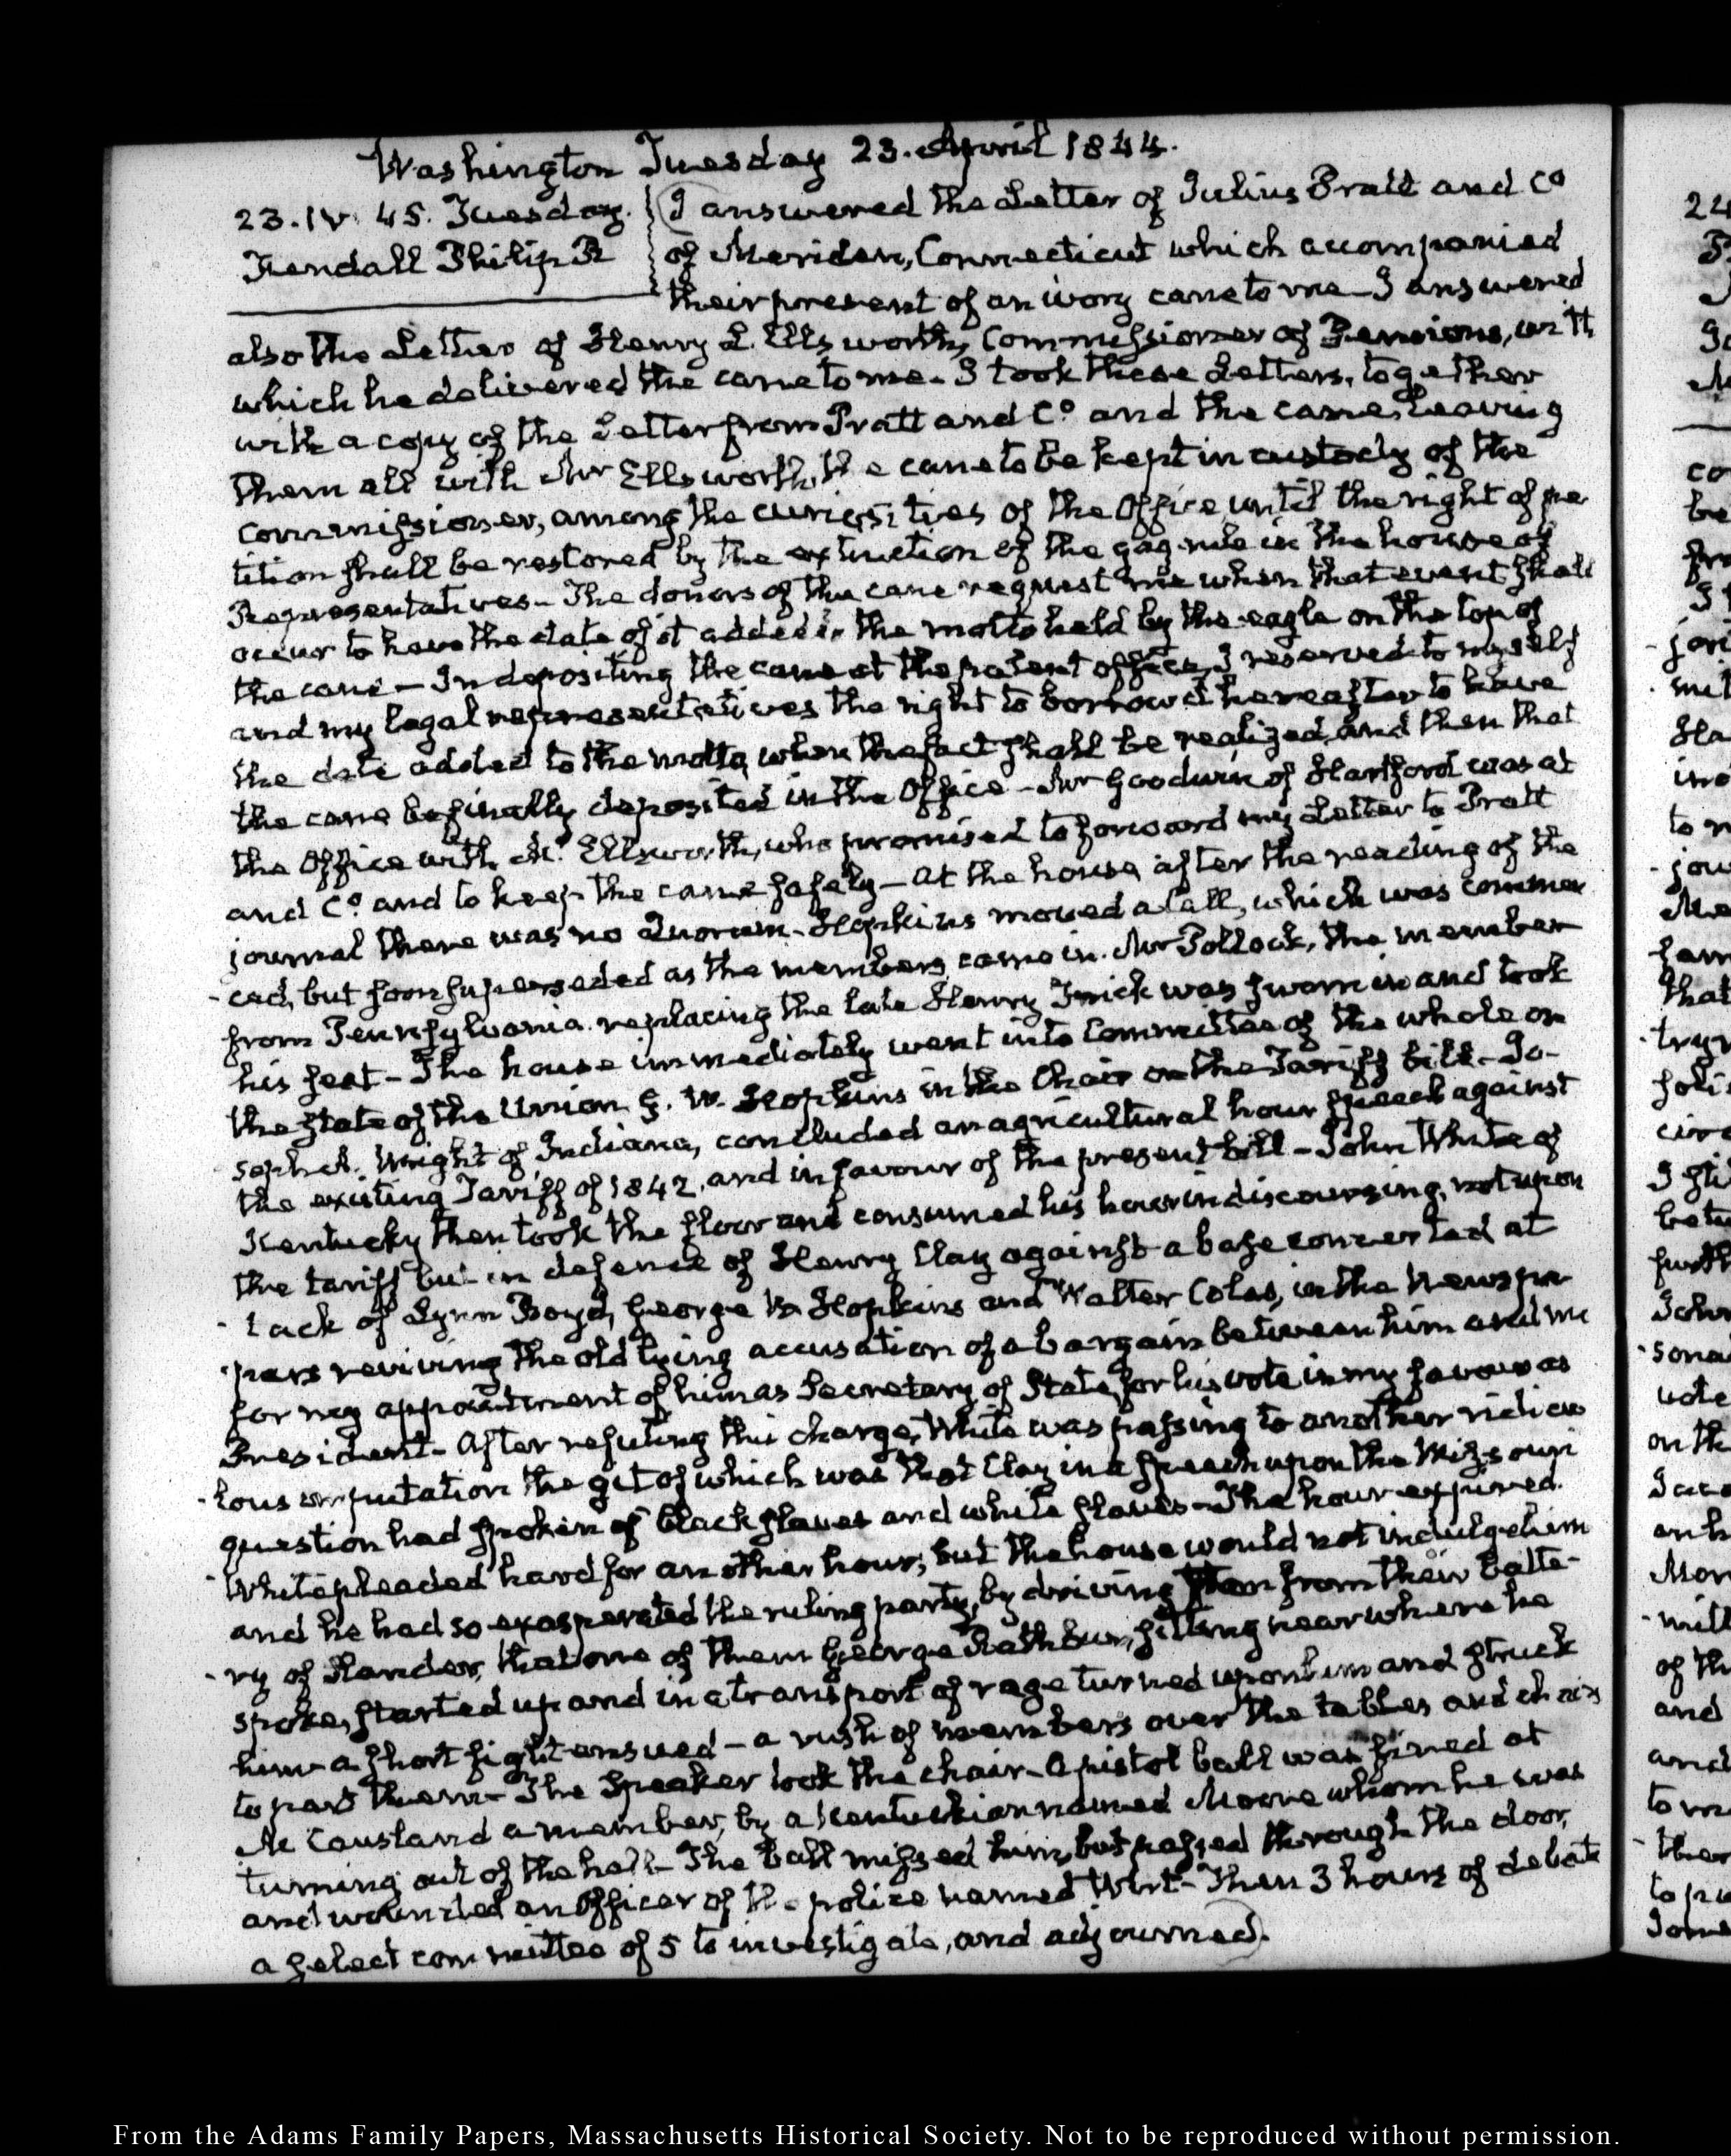 Washington Tuesday 23. April 1844.
23. IV. 45. Tuesday.
Kendall Philip R
I answered the Letter of Julius Pratt and Co
of Meriden, Connecticut which accompanied
their present of an ivory cane to me — I answered
also the Letter of Henry L. Ellsworth, Commissioner of Pensions, with
which he delivered the cane to me — I took these Letters, together
with a copy of the Letter from Pratt and Co. and the cane, leaving
them all with Mr Ellsworth, the cane to be kept in custody of the
Commissioner, among the curiosities of the Office until the right of pe
tition shall be restored by the extinction of the gag-rule in the house of
Representatives — The donors of the cane request me when that event shall
occur to have the date of it added in the motto held by the eagle on the top of
the cane — In depositing the cane at the patent office, I reserved to myself
and my legal representatives the right to borrow it hereafter to have
the date added to the motto, when the fact shall be realized, and then that
the cane be finally deposited in the Office — Mr Goodwin of Hartford was at
the Office with Mr. Ellsworth, who promised to forward my Letter to Pratt
and Co. and to keep the cane safely — At the house, after the reading of the
journal there was no Quorum — Hopkins moved a Call, which was commen
-ced, but soon superseded as the members came in. Mr Pollock, the member
from Pennsylvania replacing the late Henry Frick was sworn in and took
his seat — The house immediately went into Committee of the whole on
the state of the Union G. W. Hopkins in the Chair on the Tariff bill — Jo-
seph A. Wright of Indiana, concluded an agricultural hour speech against
the existing Tariff of 1842, and in favour of the present bill — John White of
Kentucky then took the floor and consumed his hour in discoursing, not upon
the tariff but in defence of Henry Clay against a base concerted at
-tack of Lynn Boyd, George W. Hopkins and Walter Coles, in the Newspa
-pers reviving the old lying accusation of a bargain between him and me
for my appointment of him as Secretary of State, for his vote in my favour as
President — After refuting this charge, White was passing to another ridicu
-lous imputation the gist of which was that Clay in a speech upon the Missouri
question had spoken of black slaves and white slaves — The hour expired.
White pleaded hard for another hour; but the house would not indulge him
and he had so exasperated the ruling party, by driving them from their batte-
-ry of slander, that one of them George Rathbun, sitting near where he
spoke, started up and in a transport of rage turned upon him and struck
him — a short fight ensued — a rush of members over the tables and chairs
to part them — The Speaker took the chair — A pistol ball was fired at
Mc Causland a member, by a Kentuckian named Moore whom he was
turning out of the hall — The ball missed him, but passed through the door,
and wounded an Officer of the police named Wirt — Then 3 hours of debate
a select committee of 5 to investigate, and adjourned.
From the Adams Family Papers, Massachusetts Historical Society. Not to be reproduced without permission.